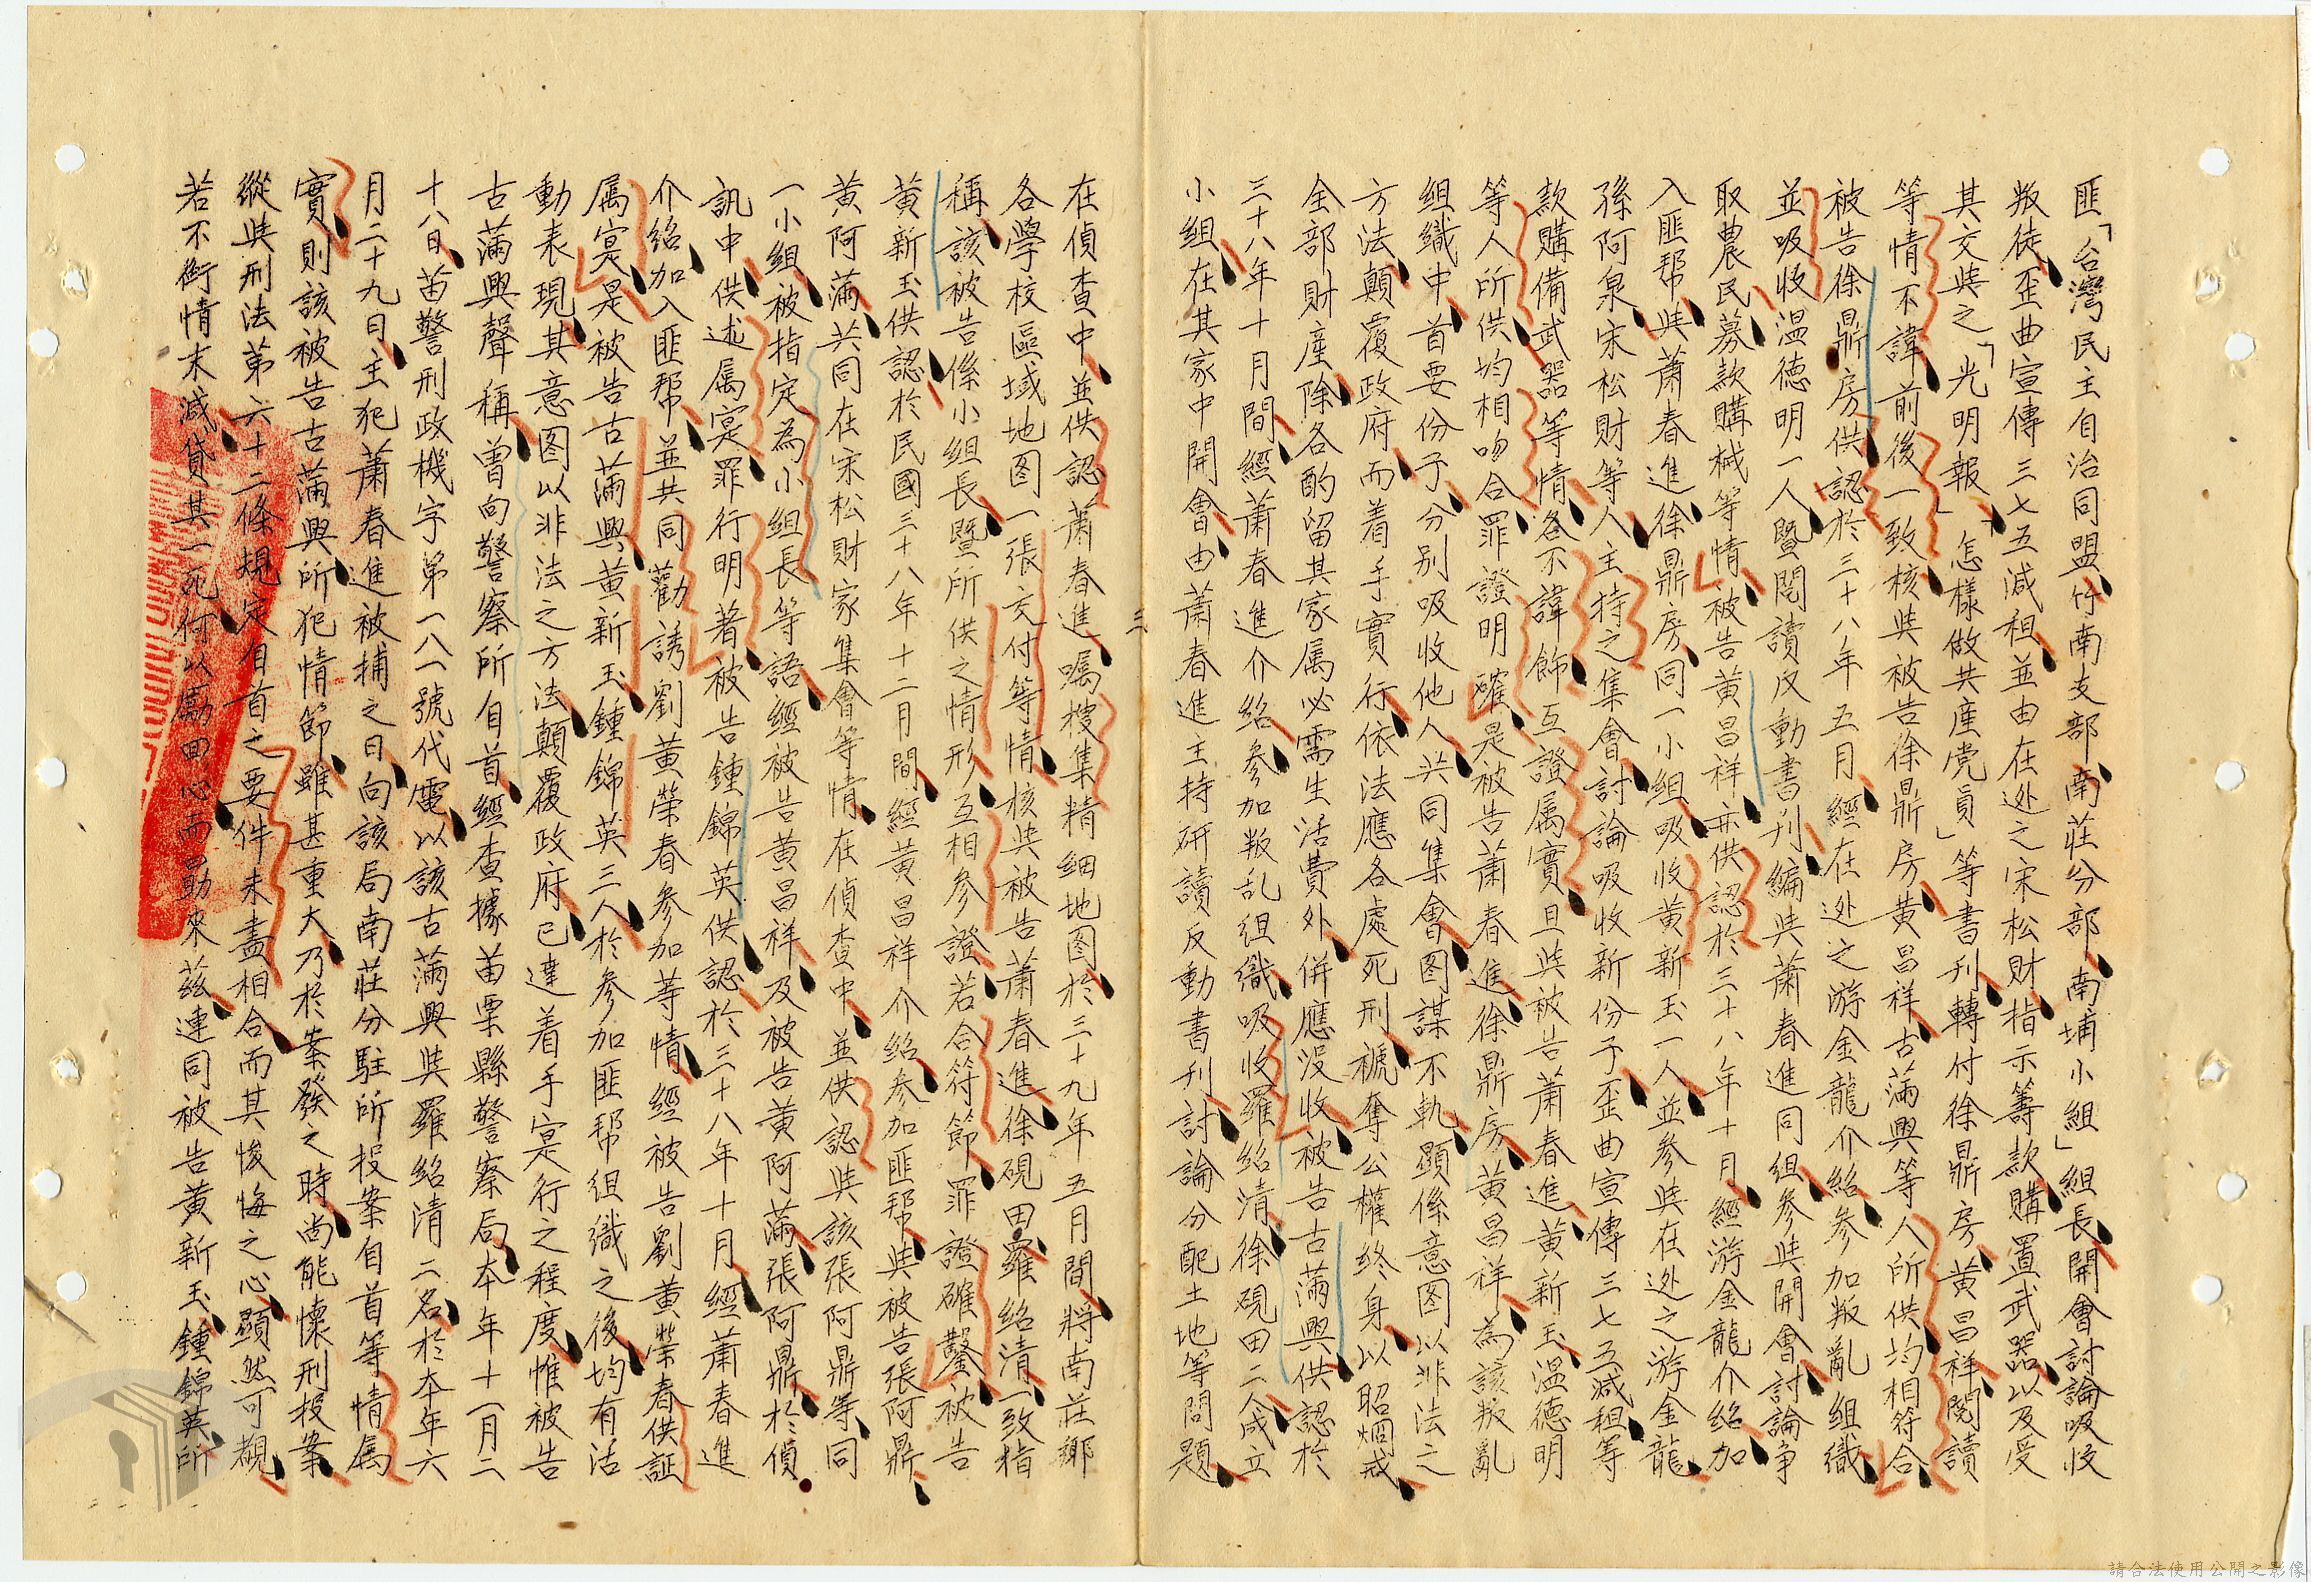 匪「台灣民主自治同盟竹南支部南莊分部南埔小組」組長開會討論吸收
叛徒歪曲宣傳三七五減租並由在逃之宋松財指示籌款購置武器以及受
其交與之「光明報」「怎樣做共産党員」等書刊轉付徐鼎房黄昌祥閱讀
等情不諱前後一致核與被告徐鼎房黄昌祥古滿興等人所供均相符合
被告徐鼎房供認於三十八年五月經在逃之游金龍介紹參加叛亂組織
並吸收温德明一人暨閱讀反動書刊編與蕭春進同組參與開會討論爭
取農民募款購械等情被告黄昌祥亦供認於三十八年十月經游金龍介紹加
入匪帮與蕭春進徐鼎房同一小組吸收黄新玉一人並參與在逃之游金龍
孫阿泉宋松財等人主持之集會討論吸收新份子歪曲宣傳三七五減租等
款購備武器等情各不諱飾互證属實且與被告蕭春進黄新玉温德明
等人所供均相吻合罪證明確是被告蕭春進徐鼎房黄昌祥為該叛亂
組織中首要份子分别吸收他人共同集會图謀不軌顯係意图以非法之
方法顛覆政府而着手實行依法應各處死刑褫奪公權終身以昭烱戒
全部財産除各酌留其家属必需生活費外併應没收被告古滿興供認於
三十八年十月間經蕭春進介紹參加叛乱组織吸收羅绍清徐硯田二人成立
小组在其家中開會由蕭春進主持研讀反動書刊討論分配土地等問題
三
在偵查中並供認蕭春進囑搜集精细地图於三十九年五月間將南莊鄉
各學校區域地图一張交付等情核與被告蕭春進徐硯田羅绍清一致指
稱該被告係小组長暨所供之情形互相參證若合符節罪證確鑿被告
黄新玉供認於民國三十八年十二月間經黄昌祥介绍參加匪帮與被告張阿鼎
黄阿滿共同在宋松財家集會等情在偵查中並供認與該張阿鼎等同
一小组被指定為小组長等語經被告黄昌祥及被告黄阿滿張阿鼎於偵
訊中供述属寔罪行明著被告鍾錦英供認於三十八年十月經蕭春進
介绍加入匪帮並共同勸誘劉黄榮春參加等情經被告劉黄榮春供証
属寔是被告古滿興黄新玉鍾錦英三人於參加匪帮组織之後均有活
動表現其意图以非法之方法顛覆政府已達着手寔行之程度惟被告
古滿興聲稱曾向警察所自首經查據苗栗縣警察局本年十一月二
十八日苗警刑政機字第一八一號代電以該古滿興與羅绍清二名於本年六
月二十九日主犯蕭春進被捕之日向該局南莊分駐所投案自首等情属
實則該被告古滿興所犯情節雖甚重大乃於案發之時尚能懷刑投案
縱與刑法第六十二條規定自首之要件未盡相合而其悛悔之心顯然可觀
若不衡情末減貸其一死何以勵回心而勸來茲連同被告黄新玉鍾錦英所
請合法使用公開之影像